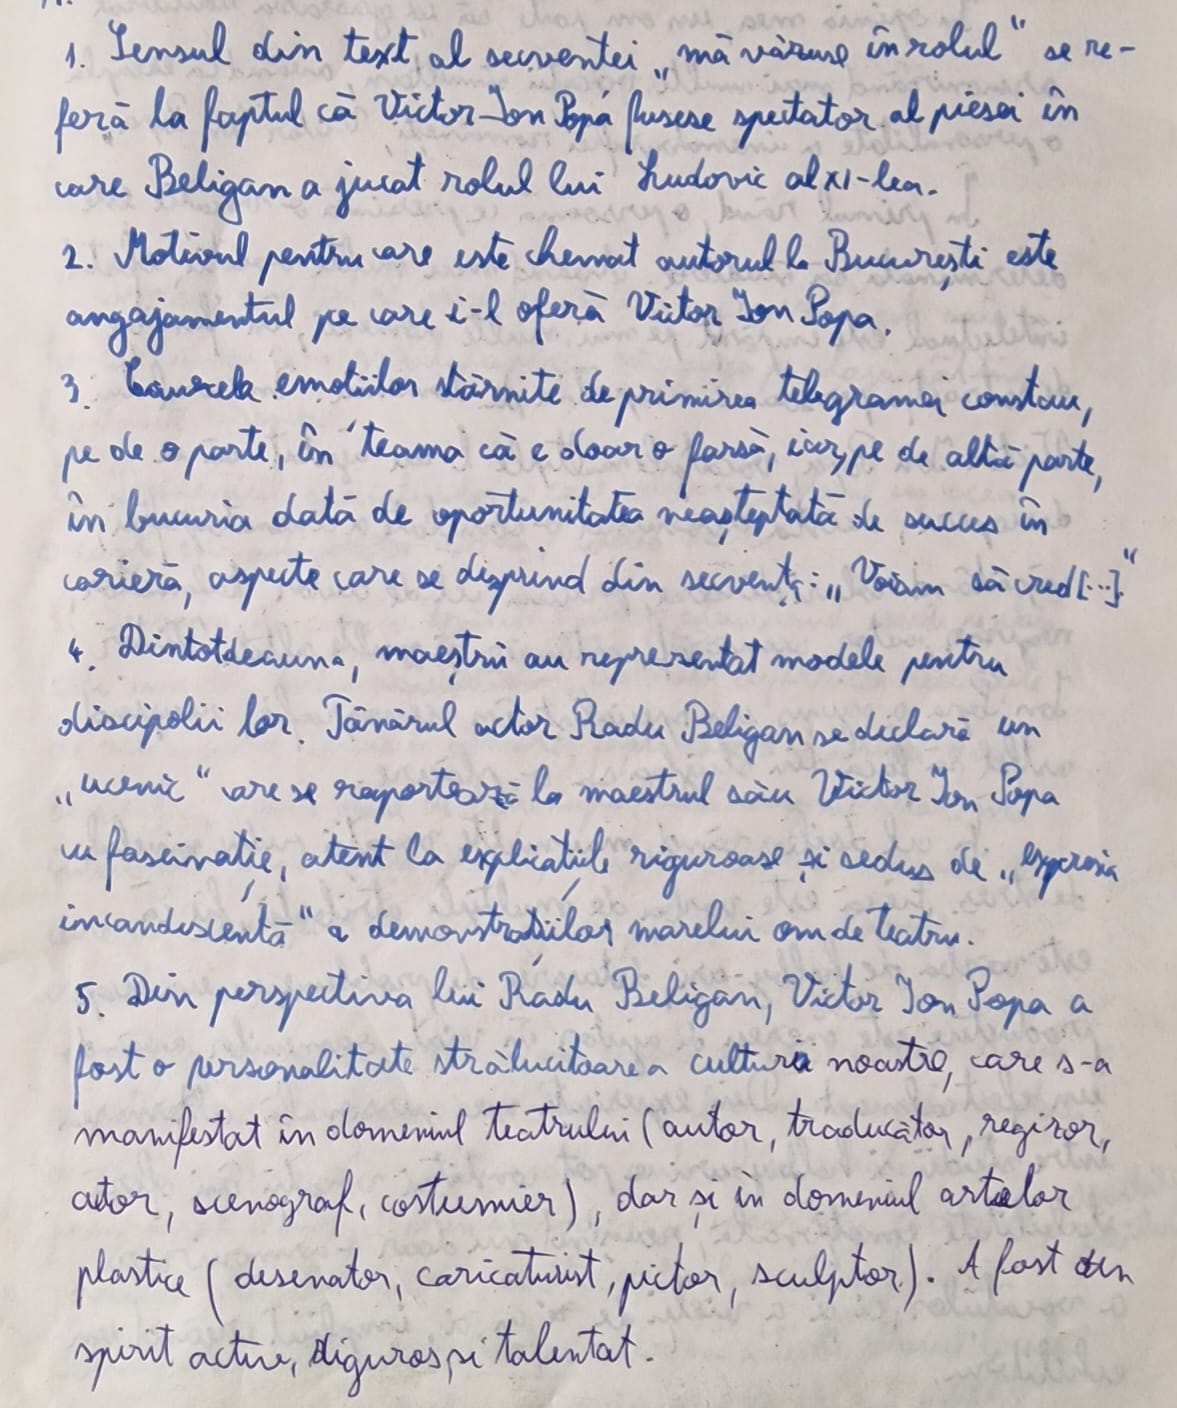 1. Sensul din text al secvenței „mă văzuse în rolul" se re-
feră la faptul că Victor Ion Popa fusese spectator al piesei în
care Beligan a jucat rolul lui Ludovic al XI-lea.
2. Motivul pentru care este chemat autorul la București este
angajamentul pe care i-l oferă Victor Ion Popa.
3. Cauzele emoțiilor stârnite de primirea telegramei constau,
pe de o parte, în teama că e doar o farsă, iar, pe de altă parte,
în bucuria dată de oportunitatea neașteptată de succes în
carieră, aspecte care se desprind din secvența: „Voiam să cred[...]"
4. Dintotdeauna, maeștrii au reprezentat modele pentru
discipolii lor. Tânărul actor Radu Beligan se declară un
„ucenic" care se raportează la maestrul său Victor Ion Popa
cu fascinație, atent la explicațiile riguroase și sedus de „expresia
incandescentă" a demonstrațiilor marelui om de teatru.
5. Din perspectiva lui Radu Beligan, Victor Ion Popa a
fost o personalitate strălucitoare a culturii noastre, care s-a
manifestat în domeniul teatrului (autor, traducător, regizor,
actor, scenograf, costumier), dar și în domeniul artelor
plastice (desenator, caricaturist, pictor, sculptor). A fost un
spirit activ, riguros și talentat.